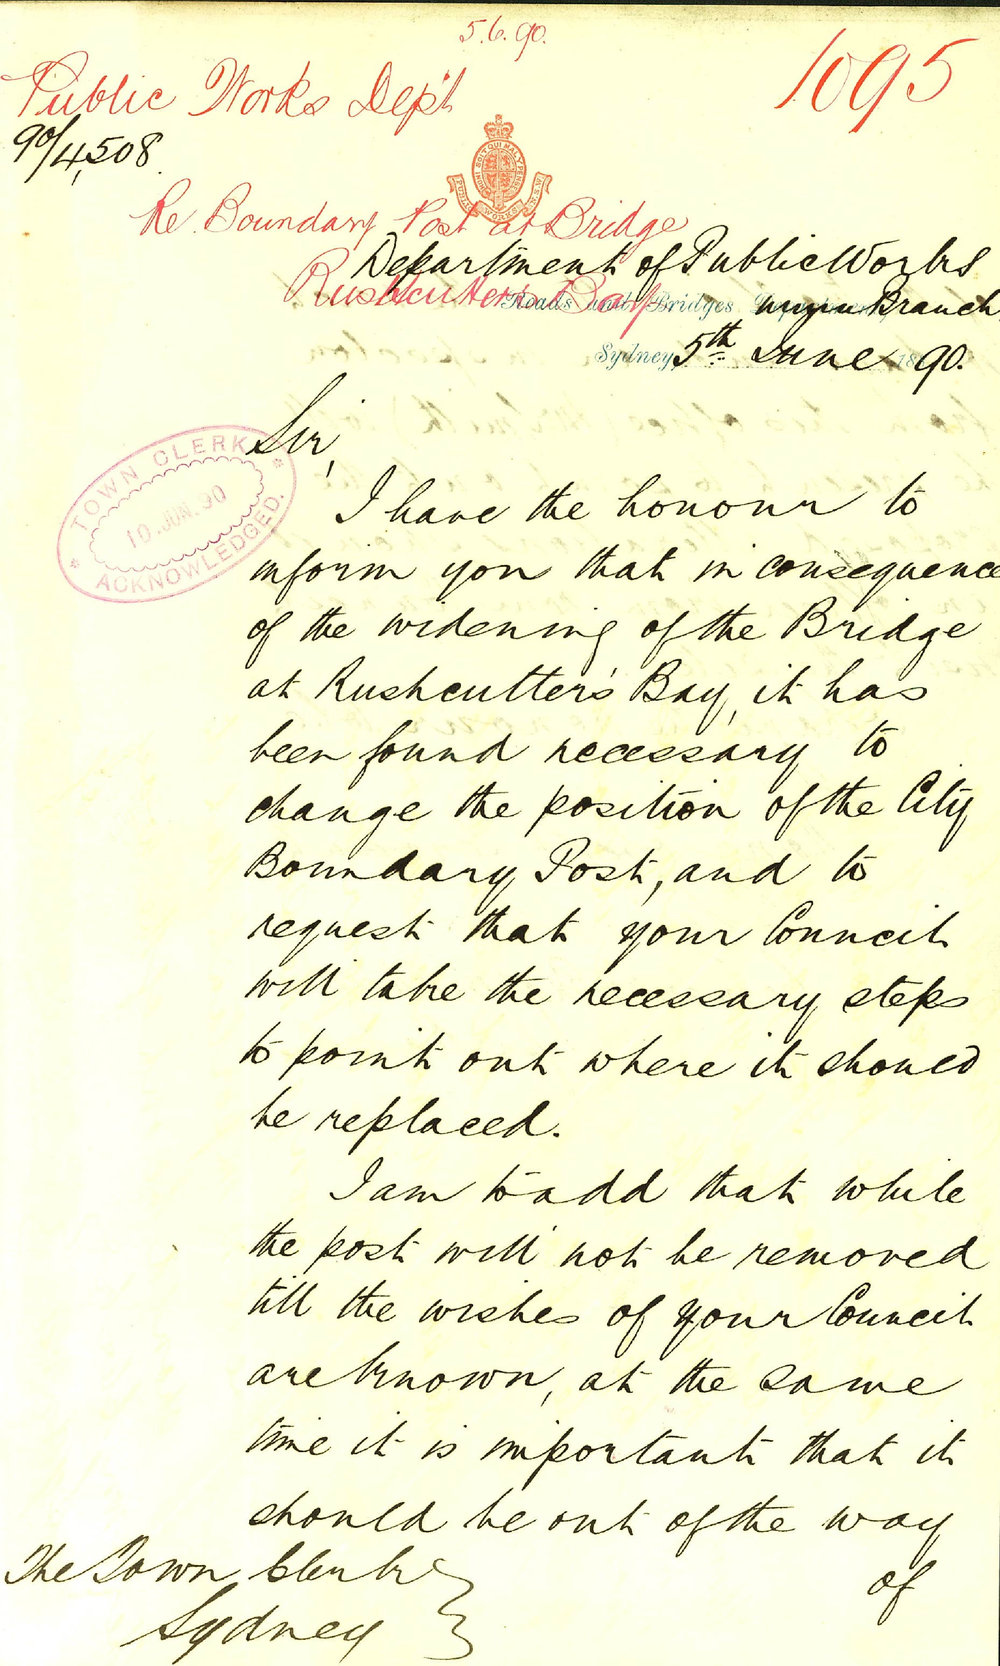 5.6.90.
1095
Public Works Dep't
90/4,508.
HONI SOIT QUI MAL Y PENSE
PUBLIC WORKS N.S.W.
Re Boundary Post at Bridge
Rushcutters Bay
Department of Public Works
Roads and Bridges Branch,
Sydney, 5th June 1890.
TOWN CLERK
10.JUN.90
ACKNOWLEDGED.
Sir,
I have the honour to
inform you that in consequence
of the widening of the Bridge
at Rushcutter's Bay, it has
been found necessary to
change the position of the City
Boundary Post, and to
request that your Council
will take the necessary steps
to point out where it should
be replaced.
I am to add that while
the post will not be removed
till the wishes of your Council
are known, at the same
time it is important that it
should be out of the way
of
The Town Clerk
Sydney